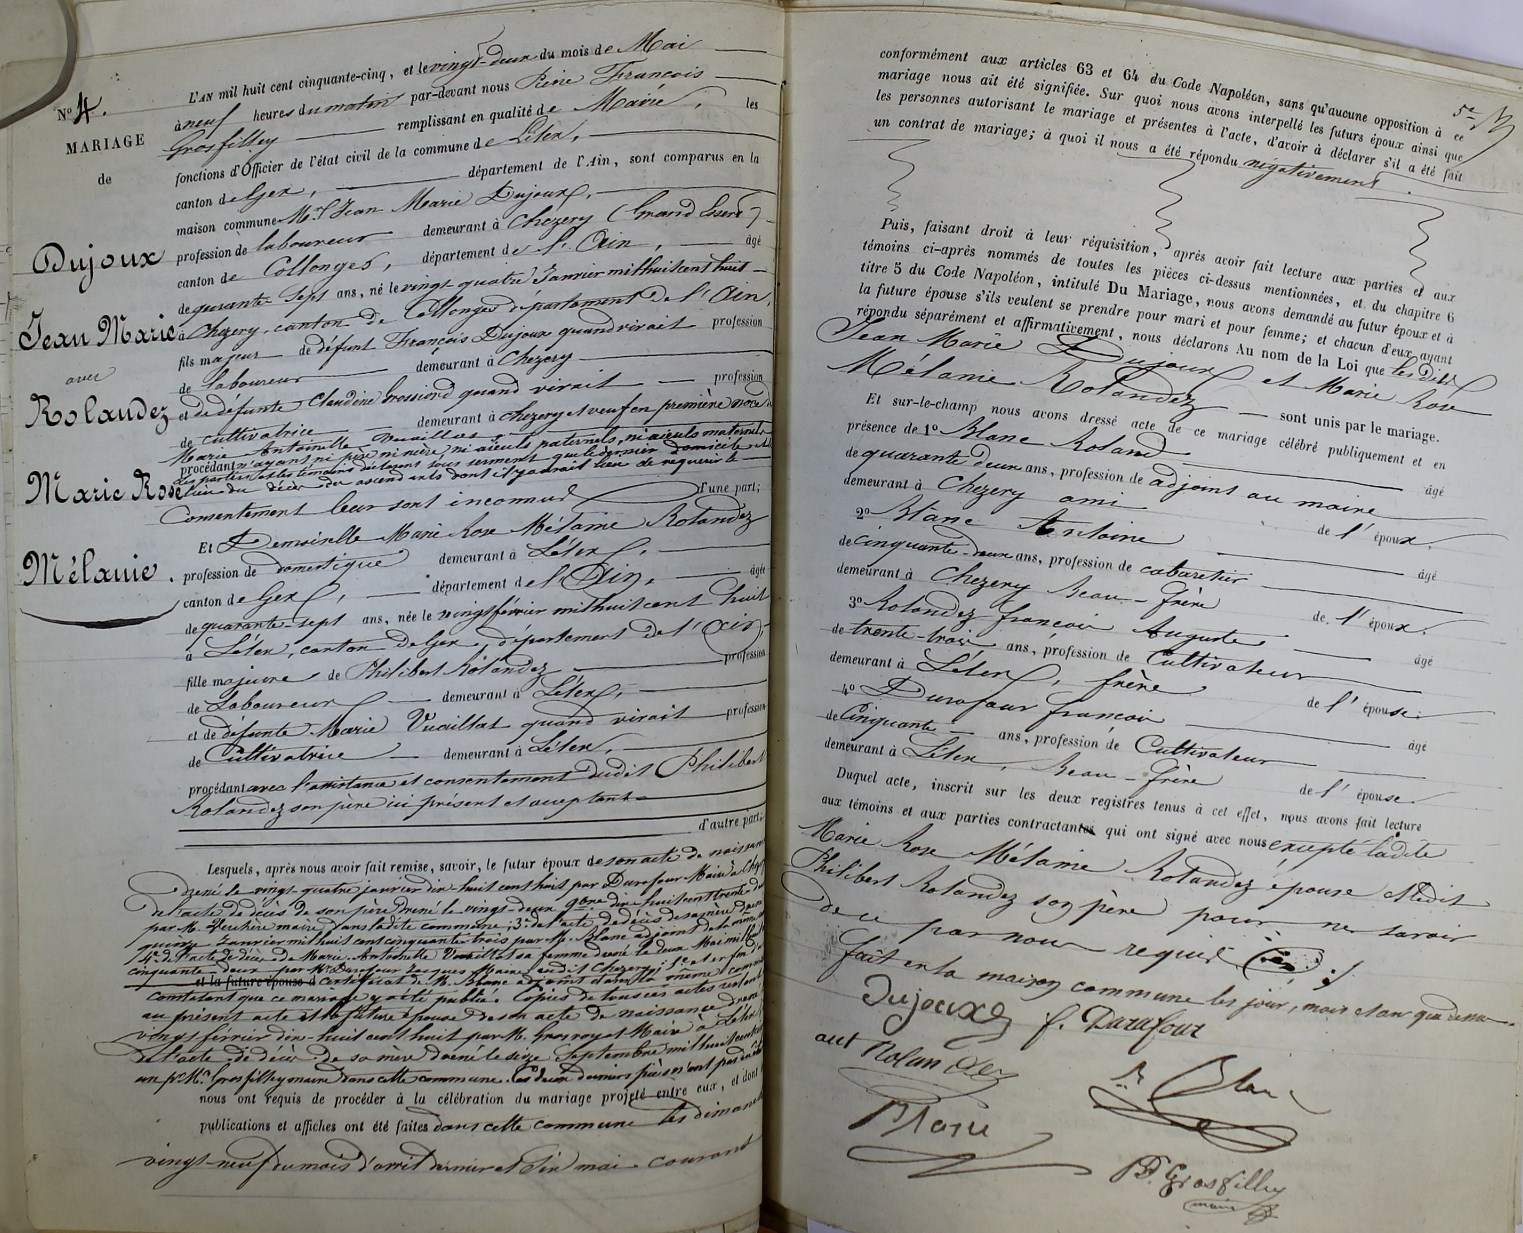 N.o 4.
MARIAGE
de
Dujoux
Jean Marie
avec
Rolandez
Marie Rose
Mélanie.
L'AN mil huit cent cinquante-cinq, et le vingt-deux du mois de Mai
à neuf heures du matin par-devant nous Réné François
Grosfilley remplissant en qualité de Maire, les
fonctions d'Officier de l'état civil de la commune de Lélex,
canton de Gex, département de l'Ain, sont comparus en la
maison commune Mr. Jean Marie Dujoux,
profession de laboureur demeurant à Chezery (Grand Essert)
canton de Collonges, département de l'Ain, âgé
de quarante-sept ans, né le vingt quatre Janvier mil huit cent huit
à Chezery, canton de Collonges département de l'Ain,
fils majeur de défunt François Dujoux quand vivait profession
de laboureur demeurant à Chezery
et de défunte Claudine Grossiord quand vivait profession
de cultivatrice demeurant à Chezery et veuf en première noce de
Marie Antoinette Vuaillat
procédant n'ayant ni père ni mère, ni aïeuls paternels, ni aïeuls maternels
les parties et les témoins déclarent sous serment que le dernier domicile et le
lieu du décès des ascendants dont il y aurait lieu de requérir le
Consentement leur sont inconnus d'une part;
Et Demoiselle Marie Rose Mélanie Rolandez
profession de domestique demeurant à Lélex,
canton de Gex, département de l'Ain, âgée
de quarante-sept ans, née le vingt février mil huit cent huit
à Lélex, canton de Gex, département de l'Ain,
fille majeure de Philibert Rolandez profession
de Laboureur demeurant à Lélex,
et de défunte Marie Vuaillat quand vivait profession
de Cultivatrice demeurant à Lélex,
procédant avec l'assistance et consentement dudit Philibert
Rolandez son père ici présent et acceptant
d'autre part;
Lesquels, après nous avoir fait remise, savoir, le futur époux de son acte de naissance
dréné le vingt-quatre janvier dix-huit cent huit par Durafour Maire à Chezery
de l'acte de décès de son père dréné le vingt-deux 9bre dix huit cent trente
par M. maire, dans la dite commune, 3° de l'acte de décès de sa mère
quinze Janvier mil huit cent cinquante trois par M. Blanc adjoint de la même
4° de l'acte de décès de Marie-Antoinette Vuaillat sa femme dréné le deux Mai mil
cinquante deux par Mr Durafour Jacques Maire audit Chezery;
et la future épouse d certificat de M. Blanc adjoint dans la même commune
constatant que ce mariage y a été publié. Copies de tous ces actes
au présent acte et la future épouse de son acte de naissance dréné
vingt février dix-huit cent huit par M. Grosroyat Maire à Lélex
de l'acte de décès de sa mère dréné le seize Septembre mil huit cent
un pr Mr Grosfilley maire dans cette commune. Ces deux derniers pièces n'ont pas
nous ont requis de procéder à la célébration du mariage projeté entre eux, et dont
publications et affiches ont été faites dans cette commune les dimanches
vingt-neuf du mois d'avril dernier et six mai courant
5e
conformément aux articles 63 et 64 du Code Napoléon, sans qu'aucune opposition à ce
mariage nous ait été signifiée. Sur quoi nous avons interpellé les futurs époux ainsi que
les personnes autorisant le mariage et présentes à l'acte, d'avoir à déclarer s'il a été fait
un contrat de mariage; à quoi il nous a été répondu négativement.
Puis, faisant droit à leur réquisition, après avoir fait lecture aux parties et aux
témoins ci-après nommés de toutes les pièces ci-dessus mentionnées, et du chapitre 6
titre 5 du Code Napoléon, intitulé Du Mariage, nous avons demandé au futur époux et à
la future épouse s'ils veulent se prendre pour mari et pour femme; et chacun d'eux ayant
répondu séparément et affirmativement, nous déclarons Au nom de la Loi que lesdits
Jean Marie Dujoux et Marie Rose
Mélanie Rolandez sont unis par le mariage.
Et sur-le-champ nous avons dressé acte de ce mariage célébré publiquement et en
présence de 1° Blanc Roland âgé
de quarante deux ans, profession de adjoint au maire
demeurant à Chezery ami de l'époux.
2° Blanc Antoine âgé
de cinquante-deux ans, profession de cabaretier
demeurant à Chezery Beau-frère de l'époux.
3° Rolandez françois Auguste âgé
de trente-trois ans, profession de Cultivateur
demeurant à Lélex, frère de l'épouse.
4° Durafour françois âgé
de Cinquante ans, profession de Cultivateur
demeurant à Lélex, Beau-frère de l'épouse
Duquel acte, inscrit sur les deux registres tenus à cet effet, nous avons fait lecture
aux témoins et aux parties contractantes qui ont signé avec nous excepté ladite
Marie Rose Mélanie Rolandez épouse et ledit
Philibert Rolandez son père pour ne savoir
de ce par nous requis
fait en la maison commune les jour, mois et an que dessus
Dujoux
f. Durafour
aut Rolandez
R Blanc
Blanc
R.F. Grosfilley
maire